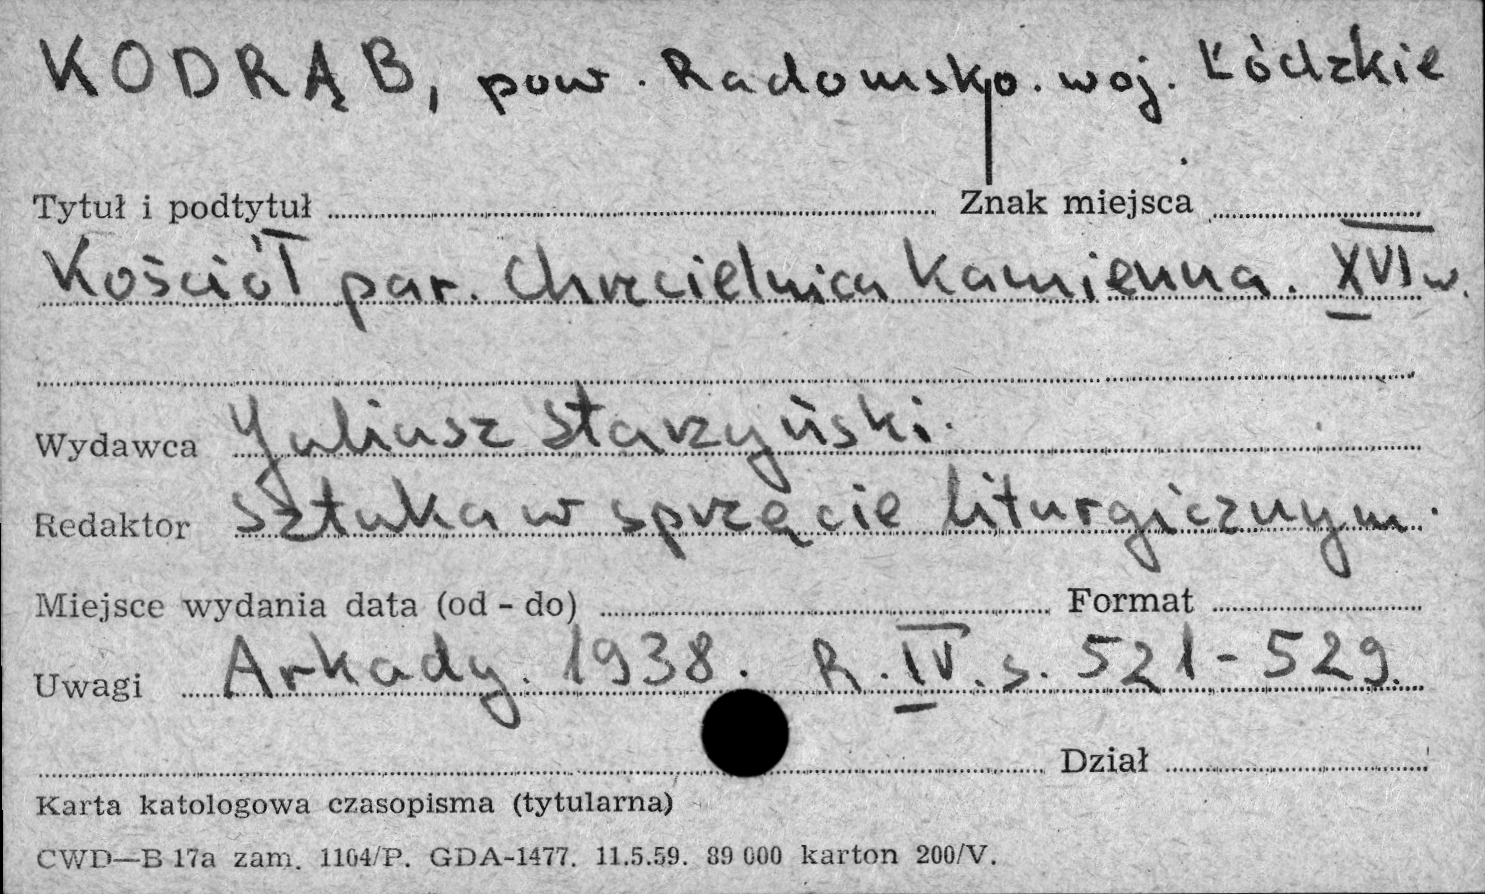 KODRĄB, pow. Radomsko. woj. Łódzkie
Tytuł i podtytuł Znak miejsca
Kościół par. Chrzcielnica kamienna. XVI w.
Wydawca Juliusz Starzyński.
Redaktor Sztuka w sprzęcie liturgicznym.
Miejsce wydania data (od - do) Format
Uwagi Arkady. 1938. R. IV. s. 521-529.
Dział
Karta katologowa czasopisma (tytularna)
CWD—B 17a zam. 1104/P. GDA-1477. 11.5.59. 89 000 karton 200/V.